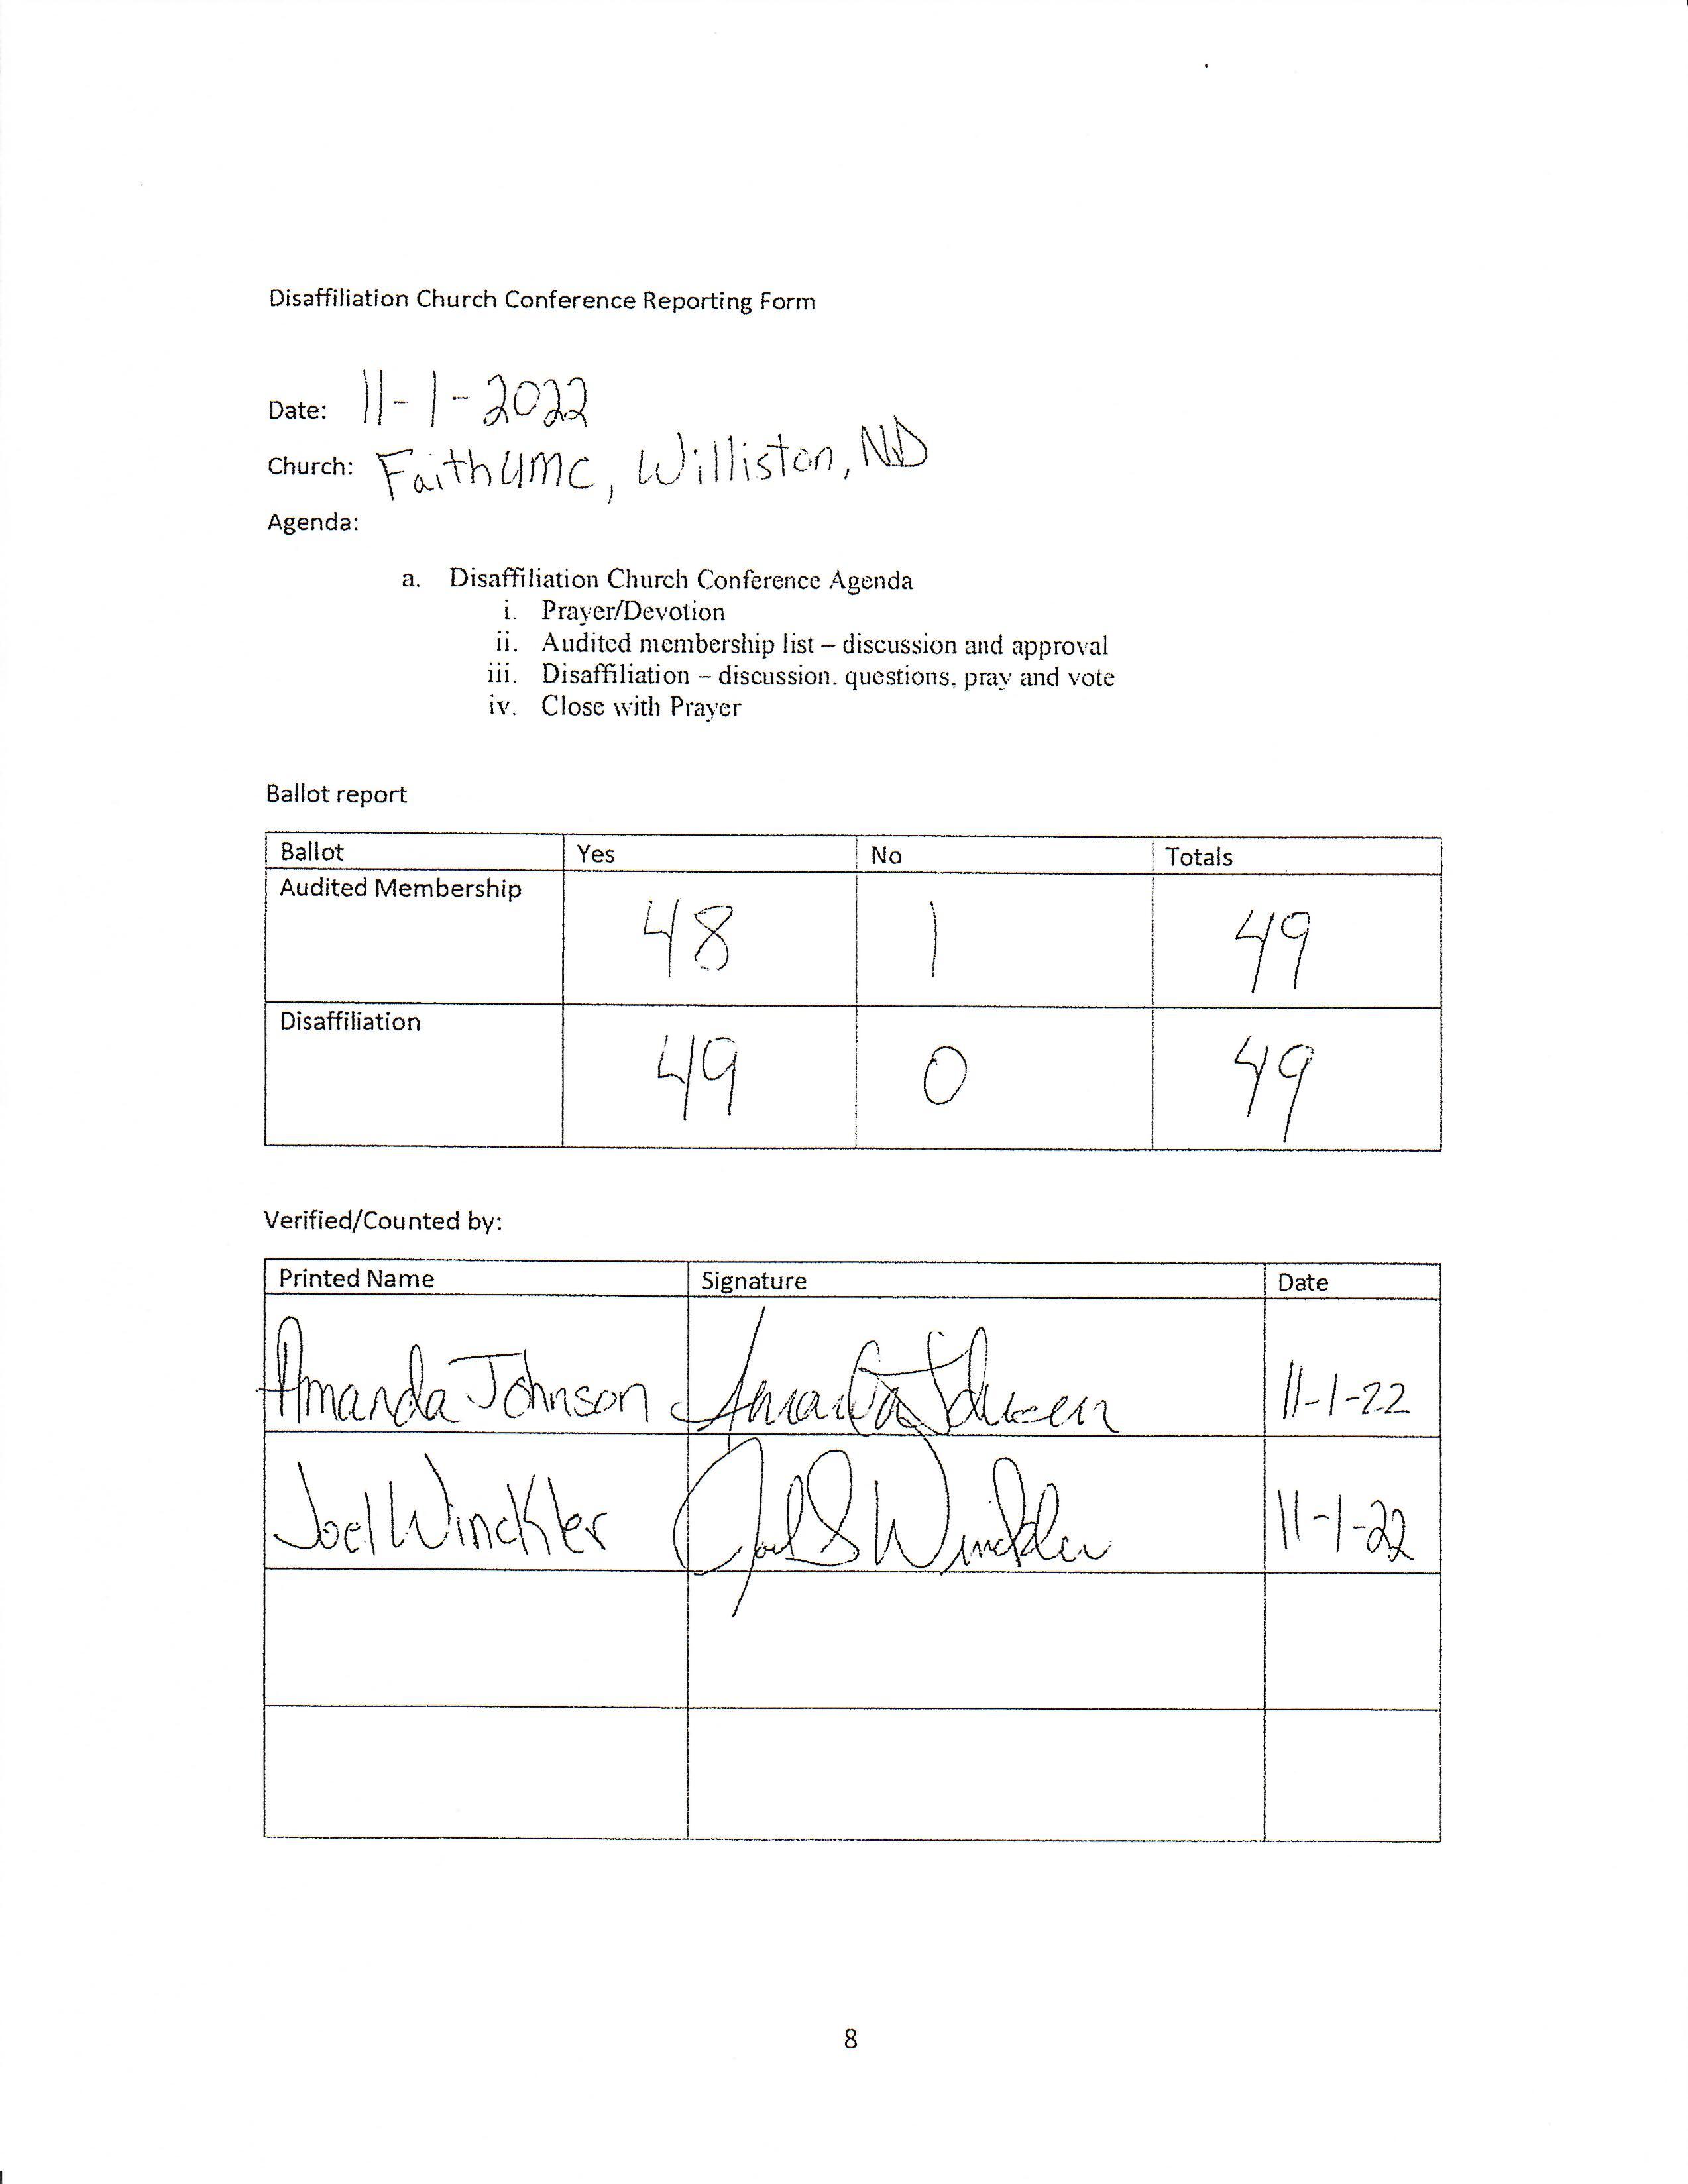 Disaffiliation Church Conference Reporting Form
Date: 11-1-2022
Church: Faith UMC, Williston, ND
Agenda:
a. Disaffiliation Church Conference Agenda
i. Prayer/Devotion
ii. Audited membership list – discussion and approval
iii. Disaffiliation – discussion. questions, pray and vote
iv. Close with Prayer
Ballot report
Ballot Yes No Totals
Audited Membership 48 1 49
Disaffiliation 49 0 49
Verified/Counted by:
Printed Name Signature Date
Amanda Johnson Amanda Johnson 11-1-22
Joel Winckler Joel S Winckler 11-1-22
8